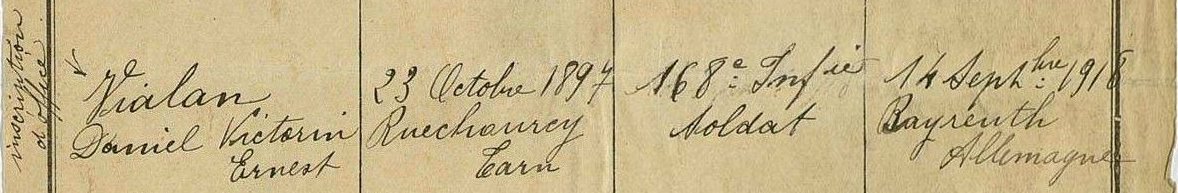 inscription
d'office
Vialan
Daniel Victorin
Ernest
23 Octobre 1897
Tarn
168e Infie
Soldat
14 Septbre 1918
Bayreuth
Allemagne